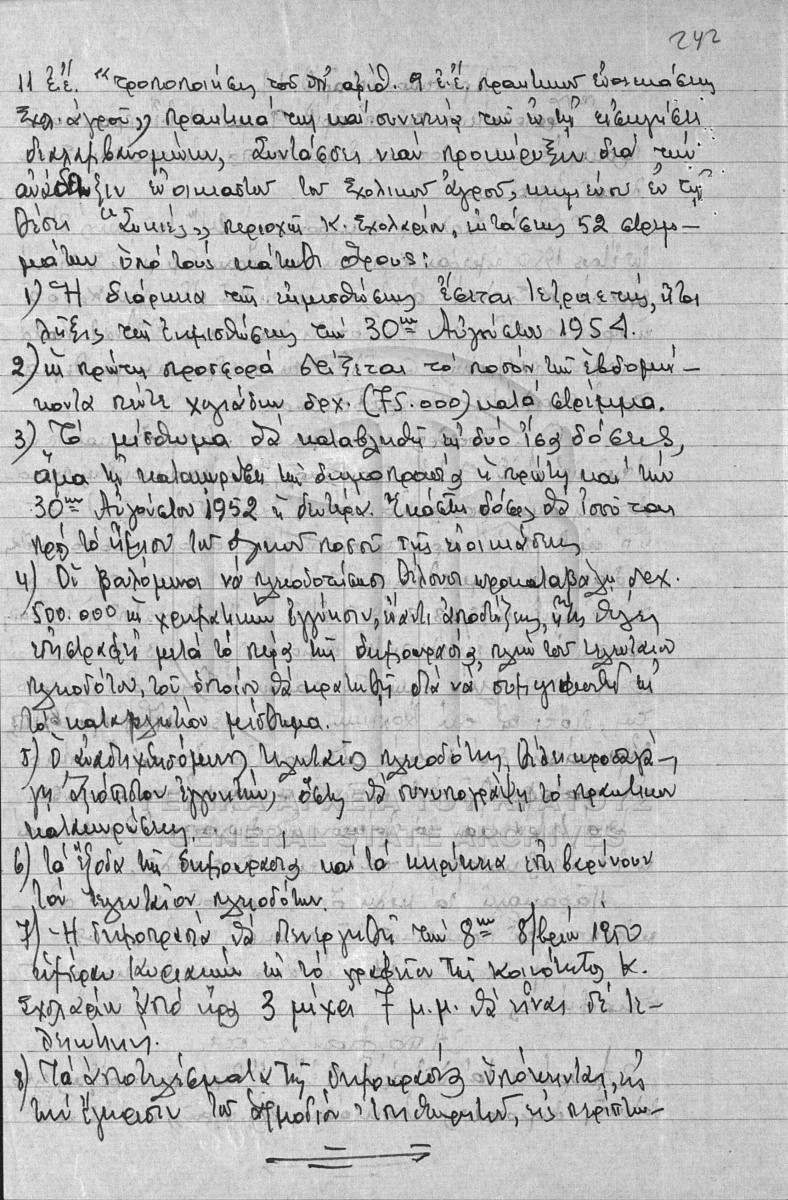 242
11 ἐ.ἔ. "τροποποιήσεις τοῦ ὑπ' ἀριθ. 9 ἐ.ἔ. πρακτικοῦ ἐνοικιάσεως
Σχολ. ἀγροῦ,, πρακτικά της καί συνεπείᾳ τῶν ἐν τῇ εἰσηγήσει
διαλαμβανομένων, Συντάσσει νέαν προκήρυξιν διά τήν
ἀνάδειξιν ἐνοικιαστοῦ τοῦ Σχολικοῦ Ἀγροῦ, κειμένου ἐν τῇ
θέσει "Συκιές,, περιοχῆς Κ. Σχολαρίου, ἐκτάσεως 52 στρεμ-
μάτων ὑπό τούς κάτωθι ὅρους:
1) Ἡ διάρκεια τῆς ἐκμισθώσεως ἔσεται τετραετής, ἤτοι
λῆξις τῆς ἐκμισθώσεως τήν 30ην Αὐγούστου 1954.
2) ὡς πρώτη προσφορά ὁρίζεται τό ποσόν τῶν ἑβδομή-
κοντα πέντε χιλιάδων δρχ. (75.000) κατά στρέμμα.
3) Τό μίσθωμα θά καταβληθῇ εἰς δύο ἴσας δόσεις,
ἅμα τῇ κατακυρώσει τῆς δημοπρασίας ἡ πρώτη καί τήν
30ην Αὐγούστου 1952 ἡ δευτέρα. Ἑκάστη δόσις θά ἰσοῦται
πρός τό ἥμισυ τοῦ ὁλικοῦ ποσοῦ τῆς ἐνοικιάσεως
4) Οἱ βουλόμενοι νά πλειοδοτήσωσι θέλουσι προκαταβάλῃ δρχ.
500.000 ὡς χρηματικήν ἐγγύησιν, ἔναντι ἀποδείξεως, ἥτις θέλει
ἐπιστραφῇ μετά τό πέρας τῆς δημοπρασίας, πλήν τοῦ τελευταίου
πλειοδότου, τοῦ ὁποίου θά κρατηθῇ διά νά συμψηφισθῇ εἰς
τό καταβλητέον μίσθωμα.
5) Ὁ ἀναδειχθησόμενος τελευταῖος πλειοδότης, θέλει προσαγά-
γῃ ἀξιόπιστον ἐγγυητήν, ὅστις θά συνυπογράψῃ τό πρακτικόν
κατακυρώσεως.
6) τά ἔξοδα τῆς δημοπρασίας καί τά κηρύκεια ἐπιβαρύνουν
τόν τελευταῖον πλειοδότην.
7) Ἡ δημοπρασία θά διενεργηθῇ τήν 8ην 8/βρίου 1950
ἡμέραν Κυριακήν εἰς τό γραφεῖον τῆς κοινότητος Κ.
Σχολαρίου ἀπό ὥρας 3 μέχρι 7 μ.μ. θά εἶναι δέ
8) Τά ἀποτελέσματα τῆς δημοπρασίας ὑπόκεινται εἰς
τήν ἔγκρισιν τοῦ ἁρμοδίου Ἐπιθεωρητοῦ, εἰς περίπτω-
GENERAL STATE ARCHIVES